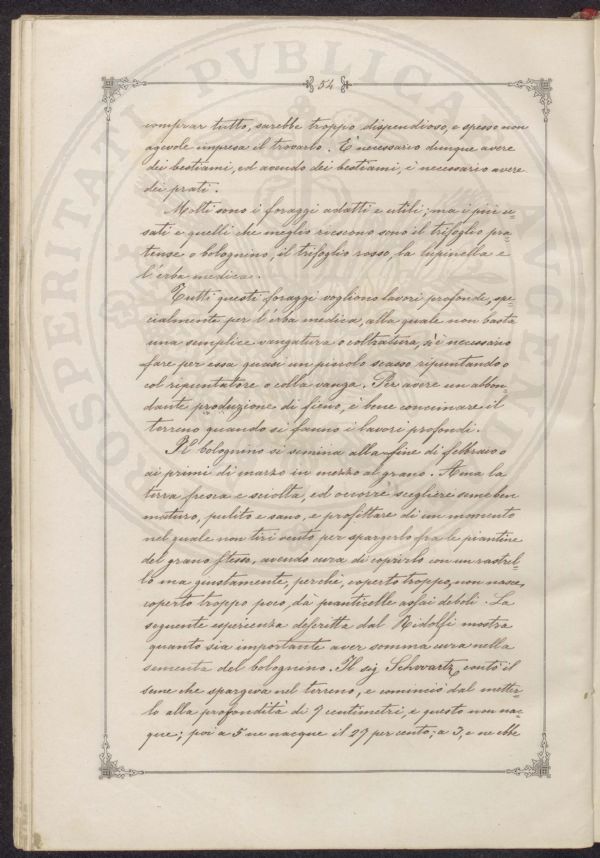 54
comprar tutto, sarebbe troppo dispendioso, e spesso non
agevole impresa il trovarlo. È necessario dunque avere
dei bestiami, ed avendo dei bestiami, è necessario avere
dei prati.
Molti sono i foraggi adatti e utili; ma i più u=
sati e quelli che meglio riescono sono il trifoglio pra=
tense o bolognino, il trifoglio rosso, la lupinella e
l'erba medica.
Tutti questi foraggi vogliono lavori profondi, spe=
cialmente per l'erba medica, alla quale non basta
una semplice vangatura o coltratura, s'è necessario
fare per essa quasi un piccolo scasso ripuntando o
col ripuntatore o colla vanga. Per avere un abbon
dante produzione di fieno, è bene concimare il
terreno quando si fanno i lavori profondi.
Il bolognino si semina alla fine di febbraio o
ai primi di marzo in mezzo al grano. Ama la
terra fresca e sciolta, ed occorre scegliere seme ben
maturo, pulito e sano, e profittare di un momento
nel quale non tiri vento per spargerlo fra le piantine
del grano stesso, avendo cura di coprirlo con un rastrel
lo ma giustamente, perchè, coperto troppo, non nasce,
coperto troppo poco, dà pianticelle assai deboli. La
seguente esperienza descritta dal Ridolfi mostra
quanto sia importante aver somma cura nella
sementa del bolognino. Il sig Schwartz contò il
seme che spargeva nel terreno, e cominciò dal metter=
lo alla profondità di 7 centimetri, e questo non nac=
que; poi a 5 ne nacque il 27 per cento; a 3, e ne ebbe
PROSPERITATI PVBLICAE AVGENDAE